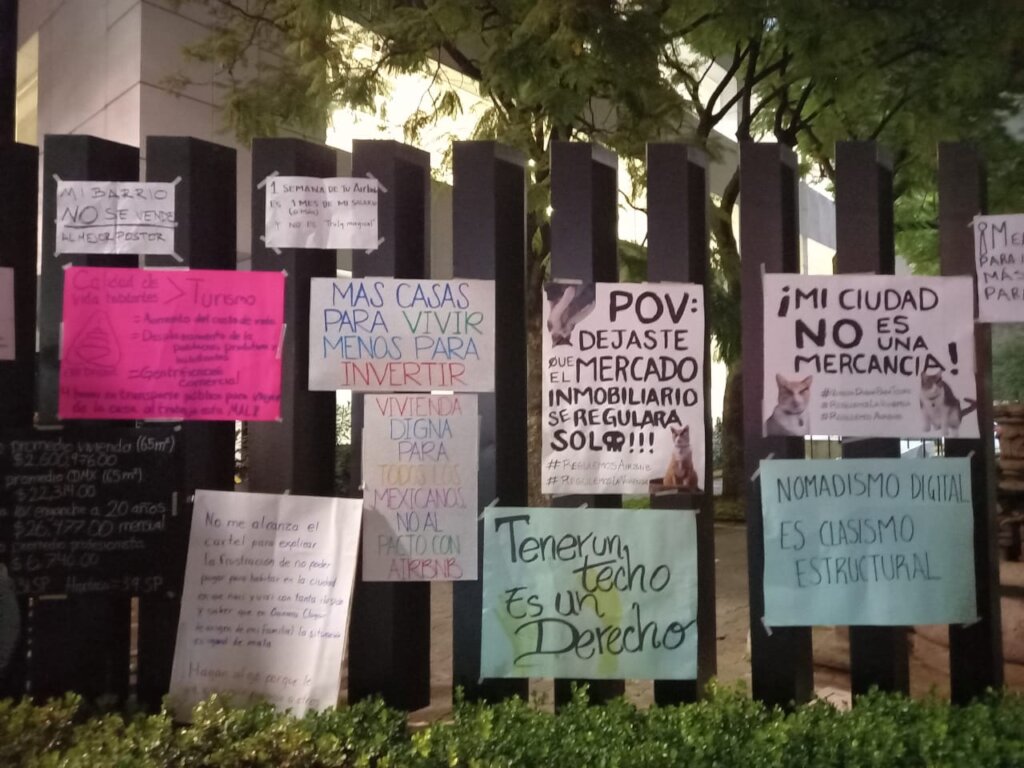 MI BARRIO
NO SE VENDE
AL MEJOR POSTOR
1 SEMANA DE TU Airbnb
ES 1 MES DE MI SALARIO
Y NO ES "Truly magical"
¡ME
PARA
MÁS
PAR
Calidad de
vida habitantes > Turismo
= Aumento del costo de vida
= Desplazamiento de la
habitantes
= Gentrificación
Comercial
4 horas en transporte público para
de la casa al trabajo está MAL!!
MAS CASAS
PARA VIVIR
MENOS PARA
INVERTIR
POV:
DEJASTE
QUE EL MERCADO
INMOBILIARIO
SE REGULARA
SOLO!!!
#REGULEMOSAIRBNB
¡MI CIUDAD
NO ES
UNA
MERCANCIA!
#REGULEMOSAIRBNB
VIVIENDA
DIGNA
PARA
TODOS LOS
MEXICANOS
NO AL
PACTO CON
AIRBNB
promedio vivienda (65m²)
promedio CDMX (65m²)
$22,314.00
enganche a 20 años
$26,977.00 mensual
promedio profesionista
No me alcanza el
cartel para explicar
la frustración de no poder
pagar para habitar en la ciudad
en que nací y viví con tanta ilusión
y saber que en
de origen de mi familia) la situación
es igual de mala
Hagan algo porque
Tener un
techo
Es un
Derecho
NOMADISMO DIGITAL
ES CLASISMO
ESTRUCTURAL